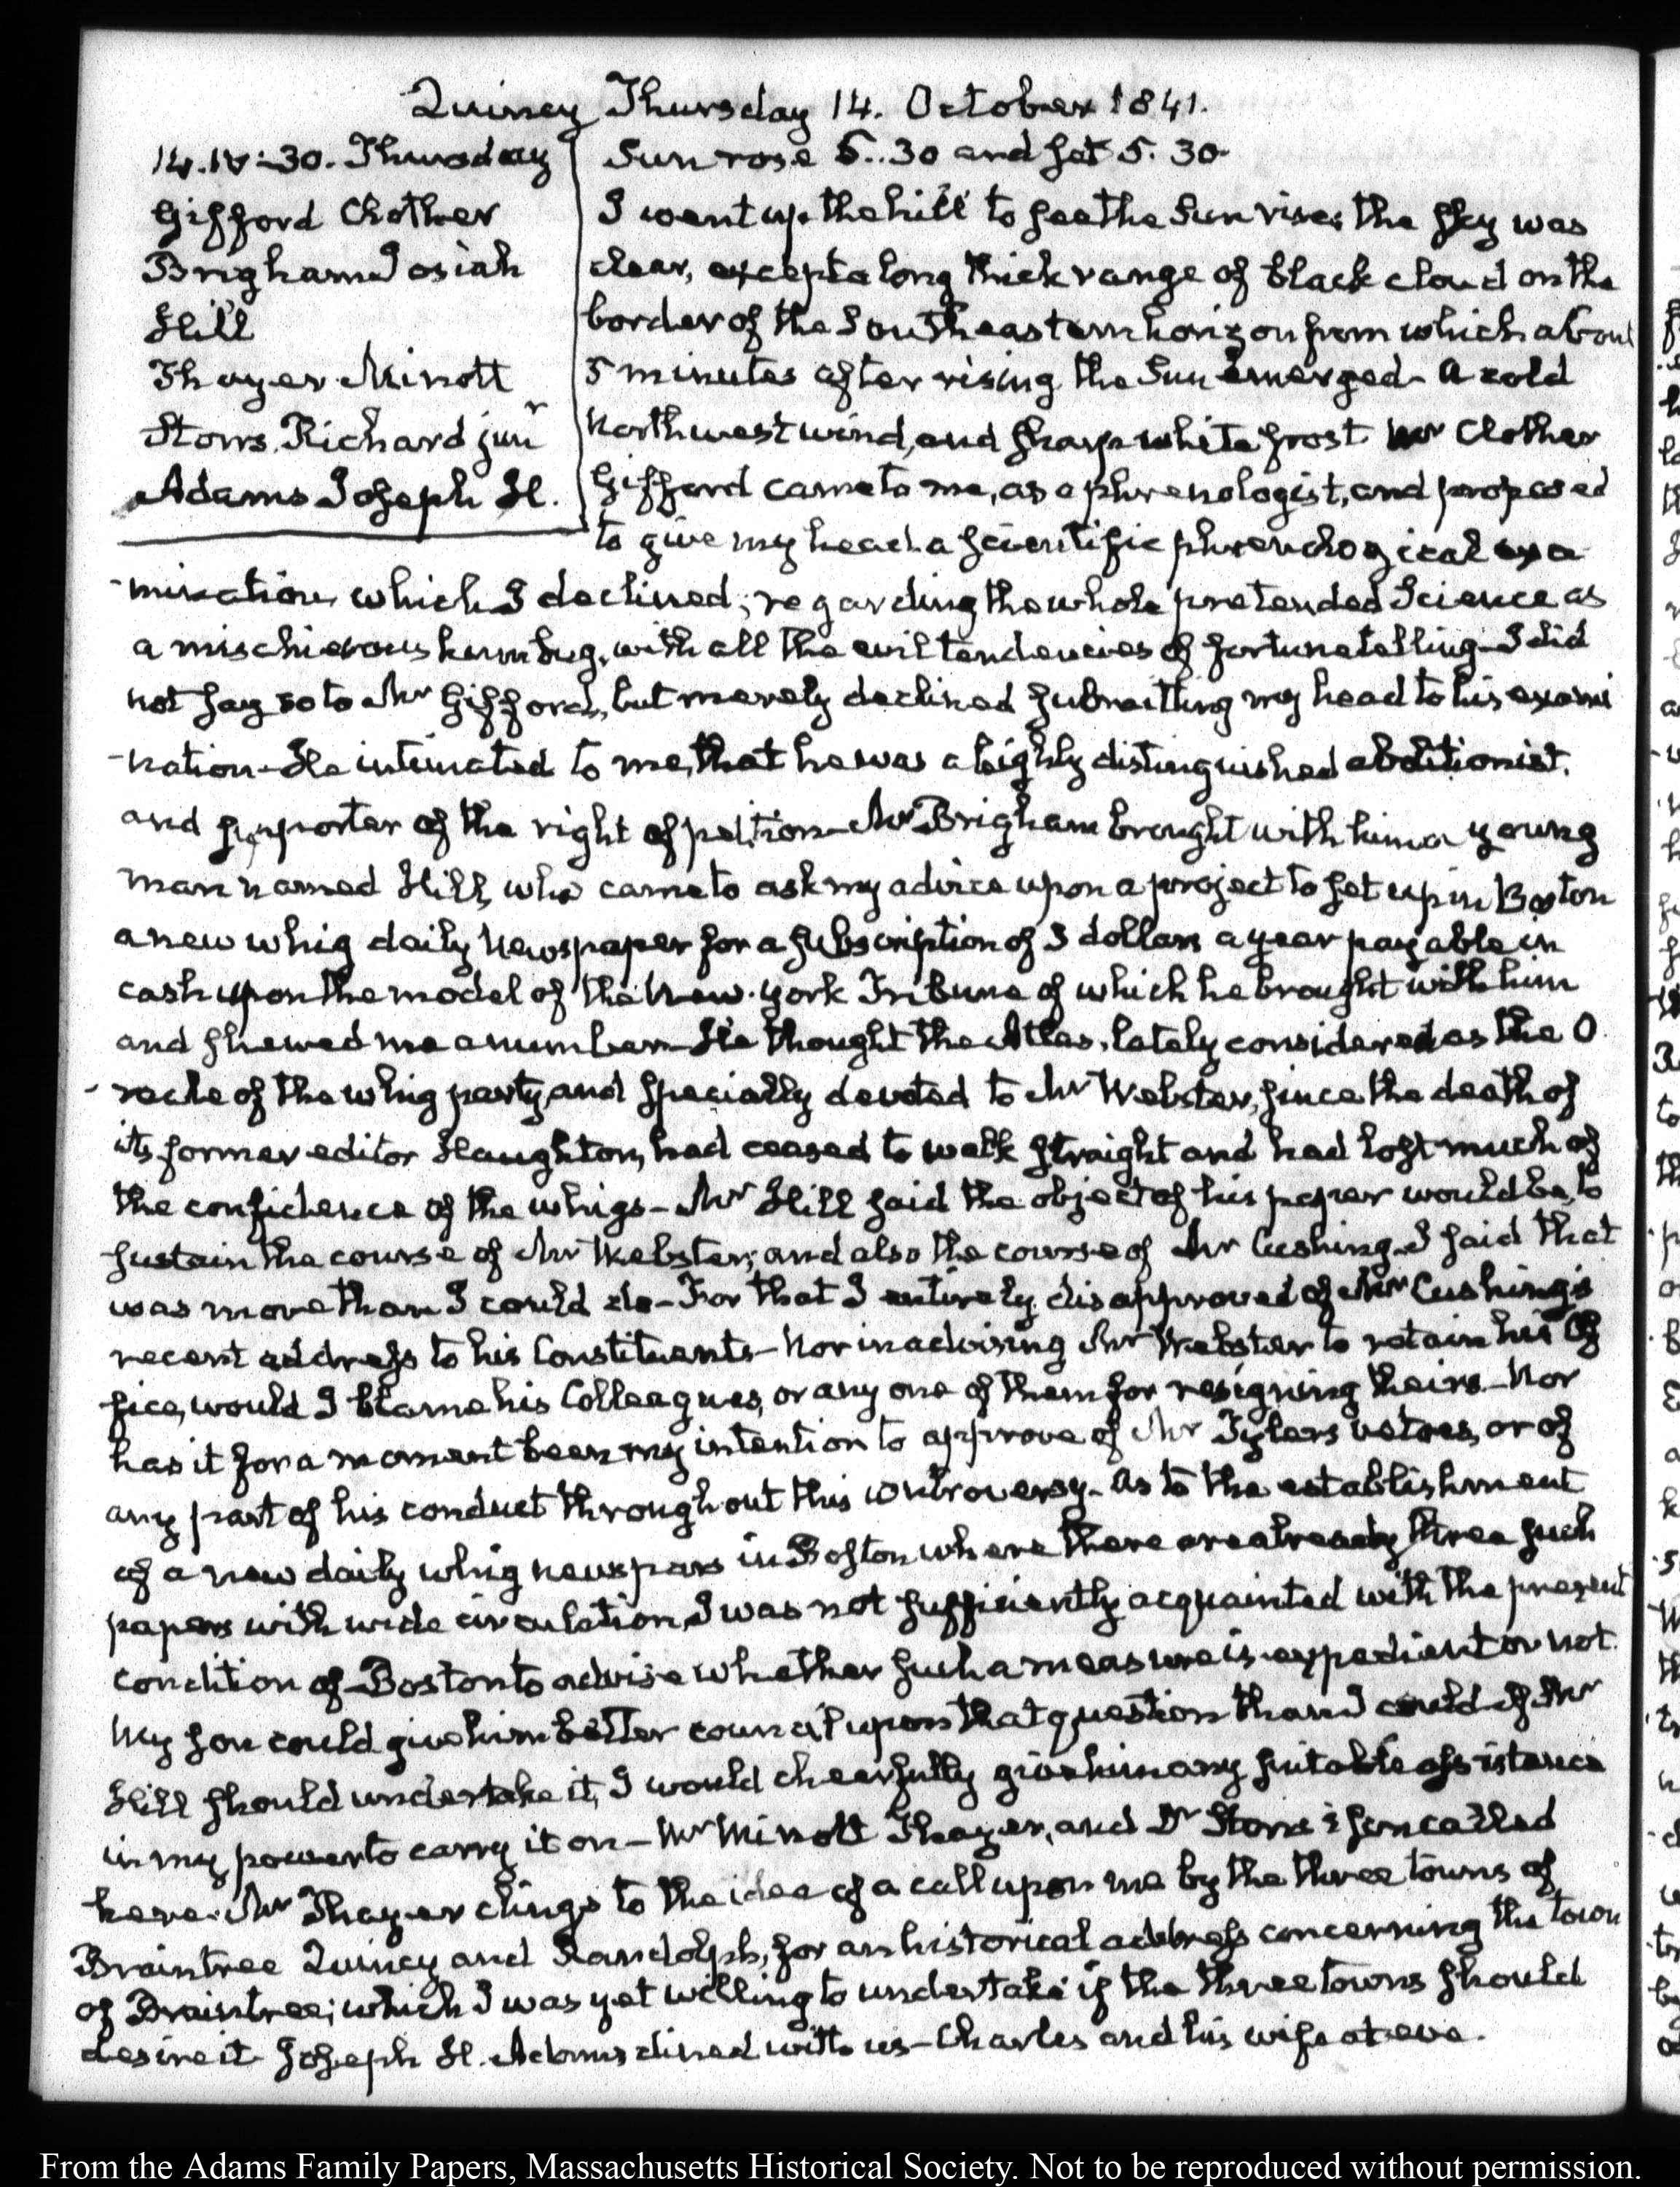 Quincy Thursday 14. October 1841.
14. IV:30. Thursday
Gifford Clother
Brigham Josiah
Hill
Thayer Minott
Storrs Richard junr
Adams Joseph H.
Sun rose 6..30 and set 5. 30
I went up the hill to see the Sun rise; the sky was
clear, except a long thick range of black cloud on the
border of the Southeastern horizon from which about
5 minutes after rising the Sun emerged- A cold
Northwest wind, and sharp white frost Mr Clother
Gifford came to me, as a phrenologist, and proposed
to give my head a scientific phrenological exa
-mination which I declined; regarding the whole pretended Science as
a mischievous humbug, with all the evil tendencies of fortunetelling- I did
not say so to Mr Gifford, but merely declined submitting my head to his exami
-nation- He intimated to me, that he was a highly distinguished abolitionist.
and supporter of the right of petition- Mr Brigham brought with him a young
man named Hill, who came to ask my advice upon a project to set up in Boston
a new whig daily Newspaper for a subscription of 3 dollars a year payable in
cash upon the model of the New-York Tribune of which he brought with him
and shewed me a number- He thought the Atlas, lately considered as the O
-racle of the whig party, and specially devoted to Mr Webster, since the death of
its former editor Haughton, had ceased to walk straight and had lost much of
the confidence of the whigs- Mr Hill said the object of his paper would be to
sustain the course of Mr Webster; and also the course of Mr Cushing- I said that
was more than I could do- For that I entirely disapproved of Mr Cushing's
recent address to his Constituents- Nor in advising Mr Webster to retain his Of
fice, would I blame his Colleagues, or any one of them for resigning theirs- Nor
has it for a moment been my intention to approve of Mr Tylers vetoes, or of
any part of his conduct throughout this controversy- As to the establishment
of a new daily whig newspars in Boston where there are already three such
papers with wide circulation, I was not sufficiently acquainted with the present
condition of Boston to advise whether such a measure is expedient or not.
My son could give him better council upon that question than I could- If Mr
Hill should undertake it, I would cheerfully give him any suitable assistance
in my power to carry it on- Mr Minott Thayer, and Dr Storrs's son called
here. Mr Thayer clings to the idea of a call upon me by the three towns of
Braintree Quincy and Randolph, for an historical address concerning the town
of Braintree; which I was yet willing to undertake if the three towns should
desire it- Joseph H. Adams dined with us- Charles and his wife at eve.
From the Adams Family Papers, Massachusetts Historical Society. Not to be reproduced without permission.